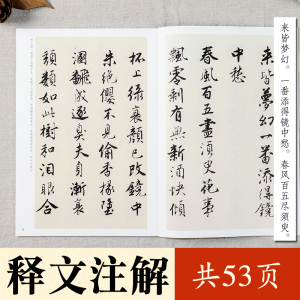 来皆梦幻。一番添得镜中愁。 春风百五尽须臾。
來皆夢幻一番添得鏡
中愁
春風百五盡須臾花事
飄零剩有無新酒快傾
杯上綠衰顏已改鏡中
朱絕纓不見香緣墮
溷飄成逐臭夫身漸衰
頹類如此樹和淚眼合
释文注解
共53页